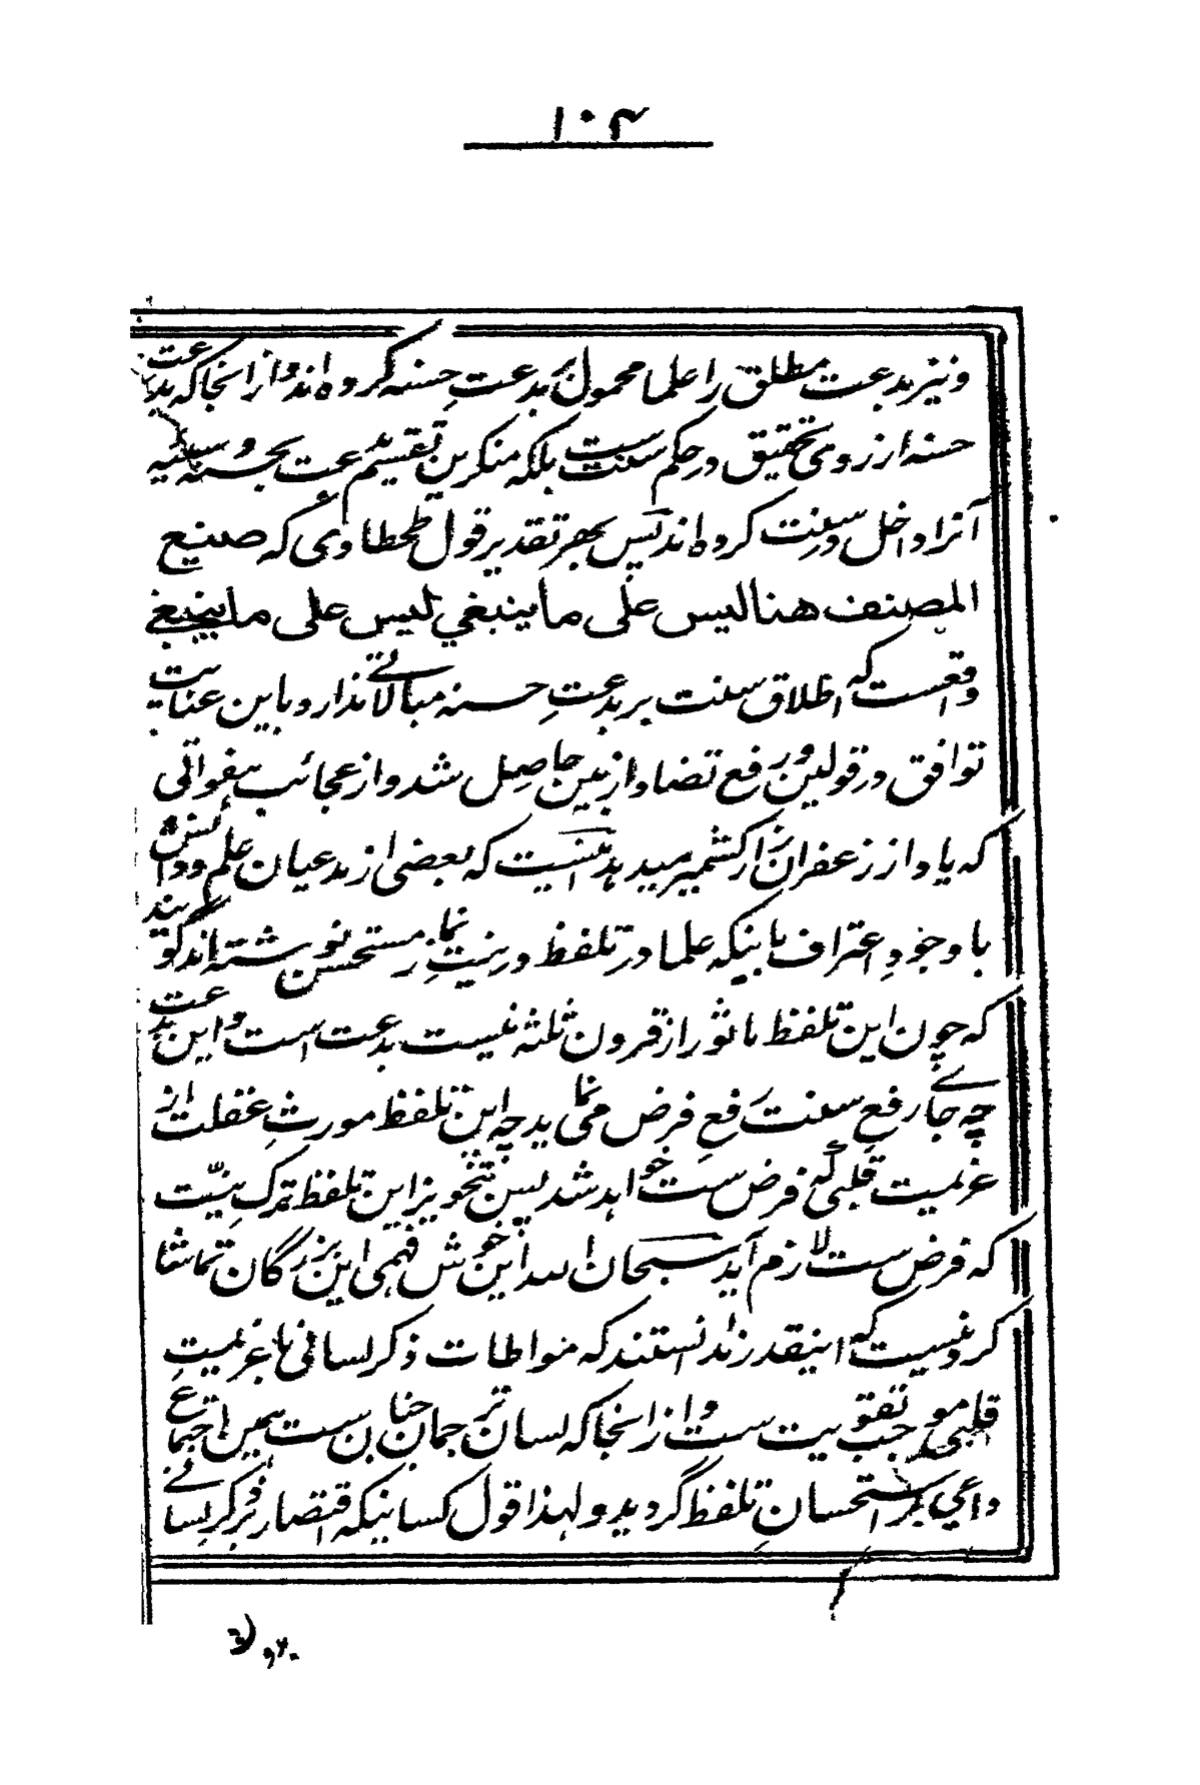 ۱۰۴
ونیز بدعت مطلق را علما محمول بر بدعتِ حسنه کرده اند و از انجا که بدعت
حسنه از روی تحقیق در حکم سنت ست بلکه منکرین تقسیم بدعت بحسنه و سیئه
آنرا داخل در سنت کرده اند پس بهر تقدیر قول طحطاوی که صنیع
المصنف هنا لیس علی ما ینبغي لیس علی ما ینبغي
واقعست که اطلاق سنت بر بدعتِ حسنه مبالاتے ندارد باین عنایت
توافق در قولین و رفع تضاد از بین حاصل شد و از عجائب هفواتی
که یاد از زعفران زار کشمیر میدهد اینست که بعضی از مدعیان علم و دانش
با وجودِ اعتراف باینکه علما در تلفظ در نیتِ نماز مستحسن نوشته اند گویند
که چون این تلفظ ماثور از قرون ثلثه نیست بدعت است و این بدعت
چه جاے رفع سنت رفعِ فرض می نماید چه این تلفظ مورثِ غفلت از
عزیمت قلبی که فرض ست خواهد شد پس تجویز این تلفظ ترکِ نیّت
که فرض ست لازم آید سبحان الله این خوش فهمی این بزرگان تماشا
کردنیست که اینقدر ندانستند که مواطات ذکر لسانی با عزیمتِ
قلبی موجب تقویت ست و از انجا که لسان ترجمان جنان ست همین اجتماع
داعی بر استحسانِ تلفظ گردید ولهذا قول کسانیکه اقتصار بر ذکر لسانے